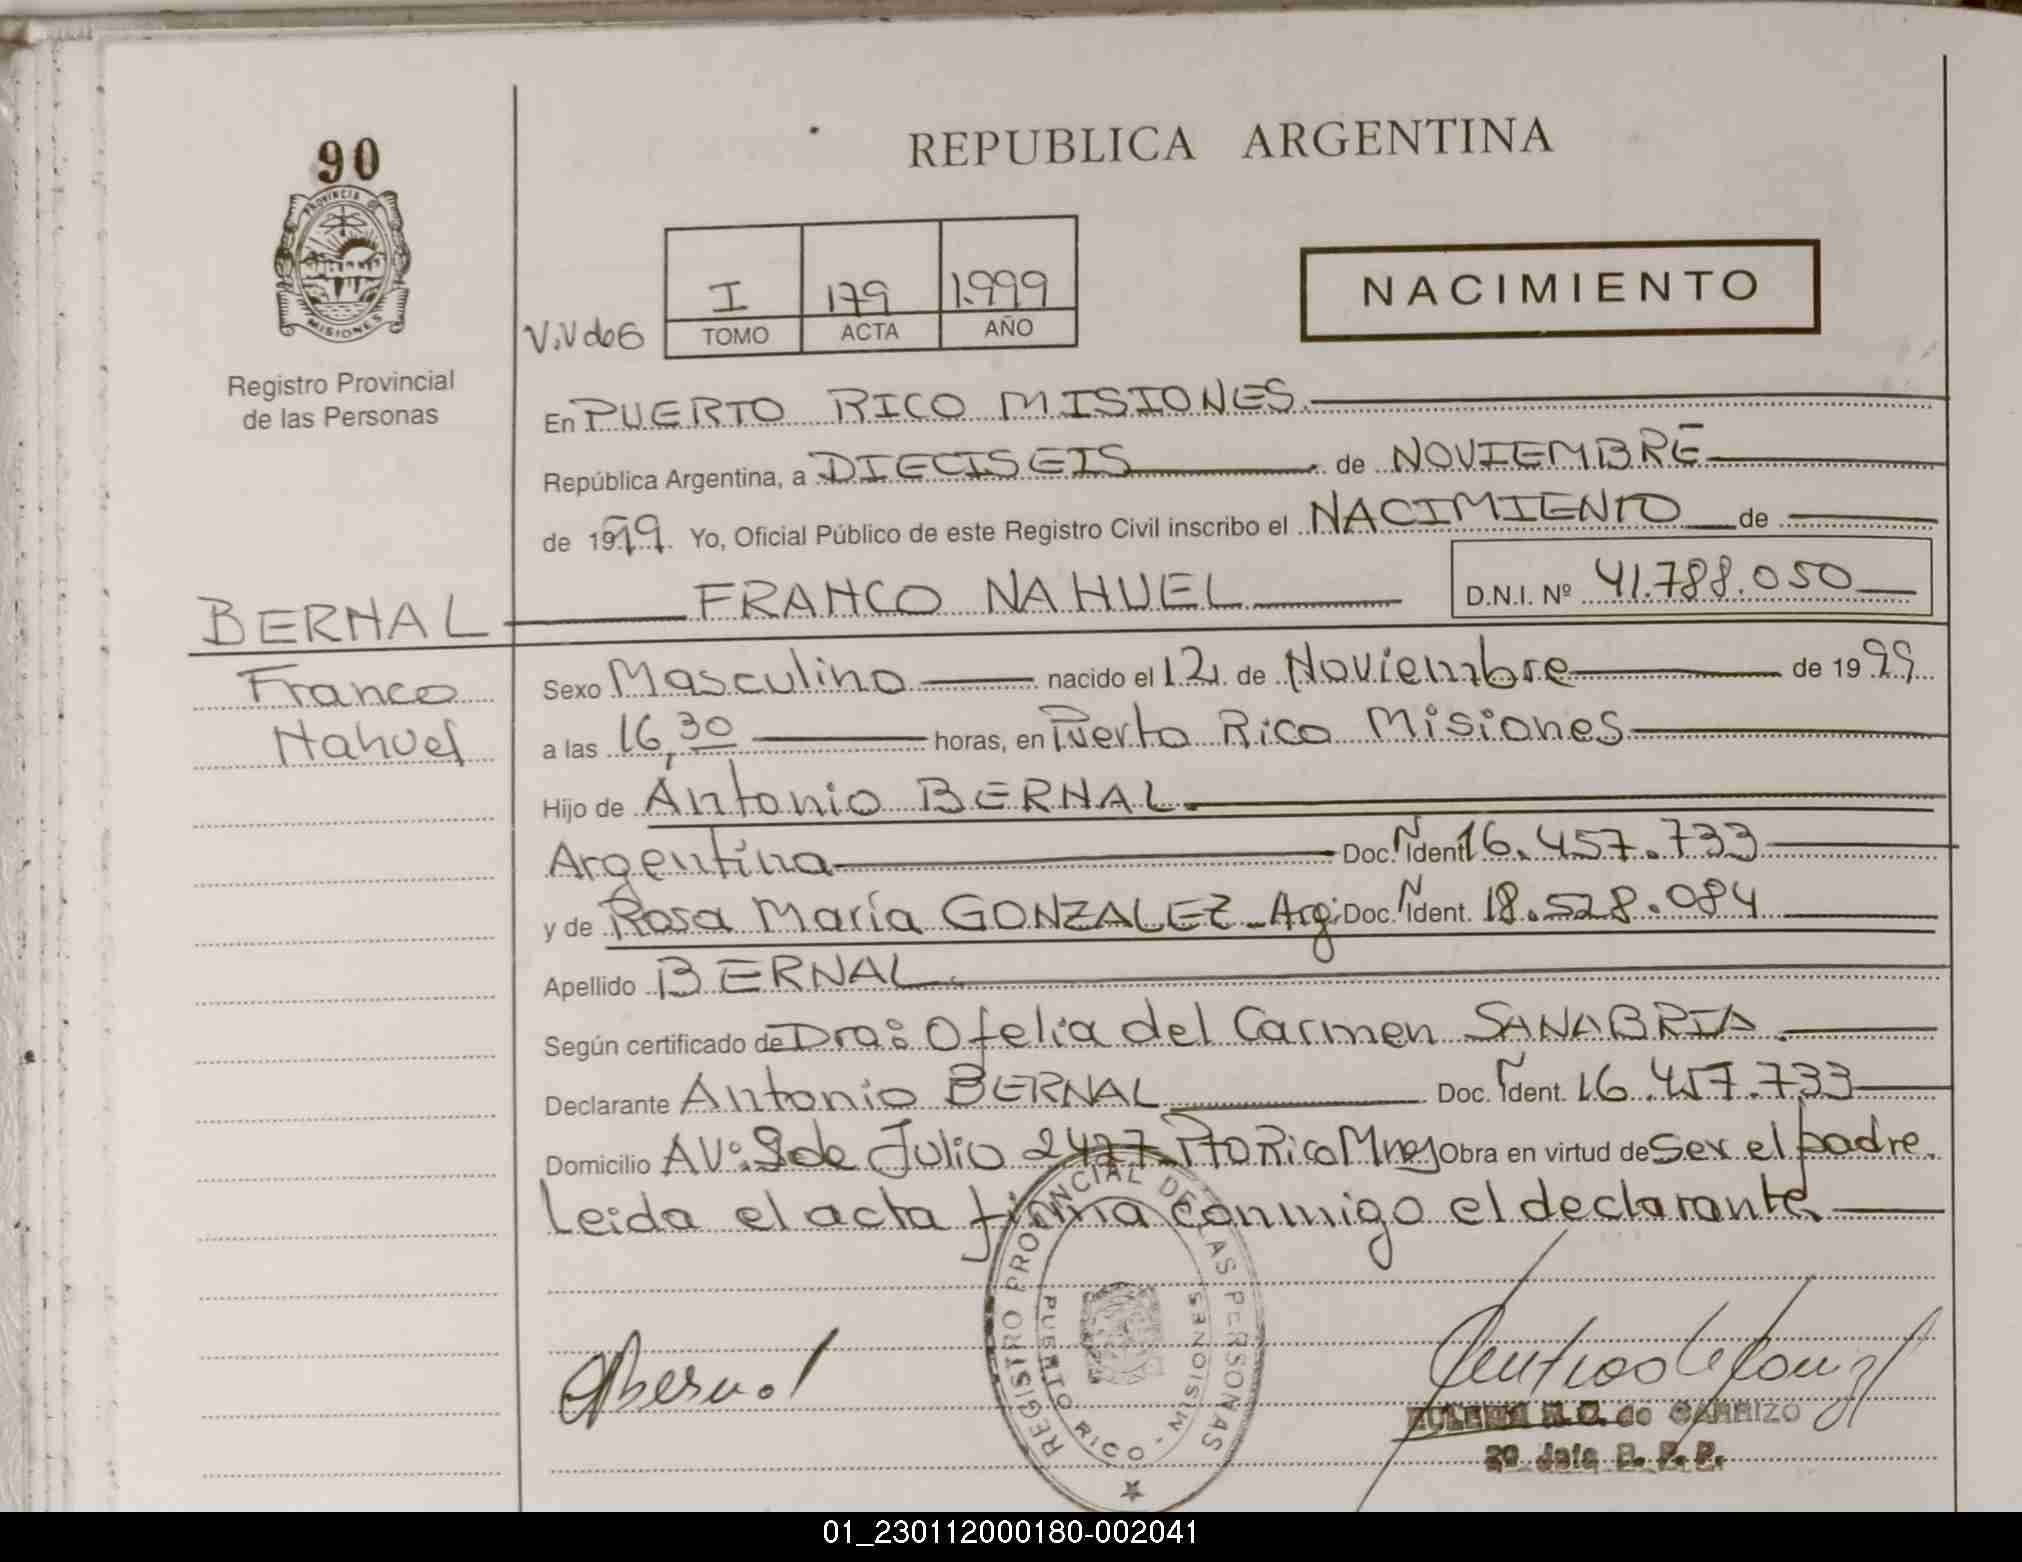 90
PROVINCIA DE
MISIONES
Registro Provincial
de las Personas
REPUBLICA ARGENTINA
I 179 1.999
TOMO ACTA AÑO
NACIMIENTO
En PUERTO RICO MISIONES.
República Argentina, a DIECISEIS de NOVIEMBRE
de 1999. Yo, Oficial Público de este Registro Civil inscribo el NACIMIENTO de
BERNAL FRANCO NAHUEL D.N.I. Nº 41.788.050
Franco
Nahuel
Sexo Masculino nacido el 12 de Noviembre de 1999
a las 16,30 horas, en Puerto Rico Misiones
Hijo de Antonio BERNAL
Argentina Doc. Ident. 16.457.733
y de Rosa María GONZALEZ - Arg. Doc. Ident. 18.528.084
Apellido BERNAL
Según certificado de Dra: Ofelia del Carmen SANABRIA.
Declarante Antonio BERNAL Doc. Ident. 16.457.733
Domicilio AV: 9 de Julio 2427 Pto Rico Mnes Obra en virtud de ser el padre.
Leida el acta firma conmigo el declarante.
REGISTRO PROVINCIAL DE LAS PERSONAS
PUERTO RICO - MISIONES
Bernal
de CARRIZO
01_230112000180-002041